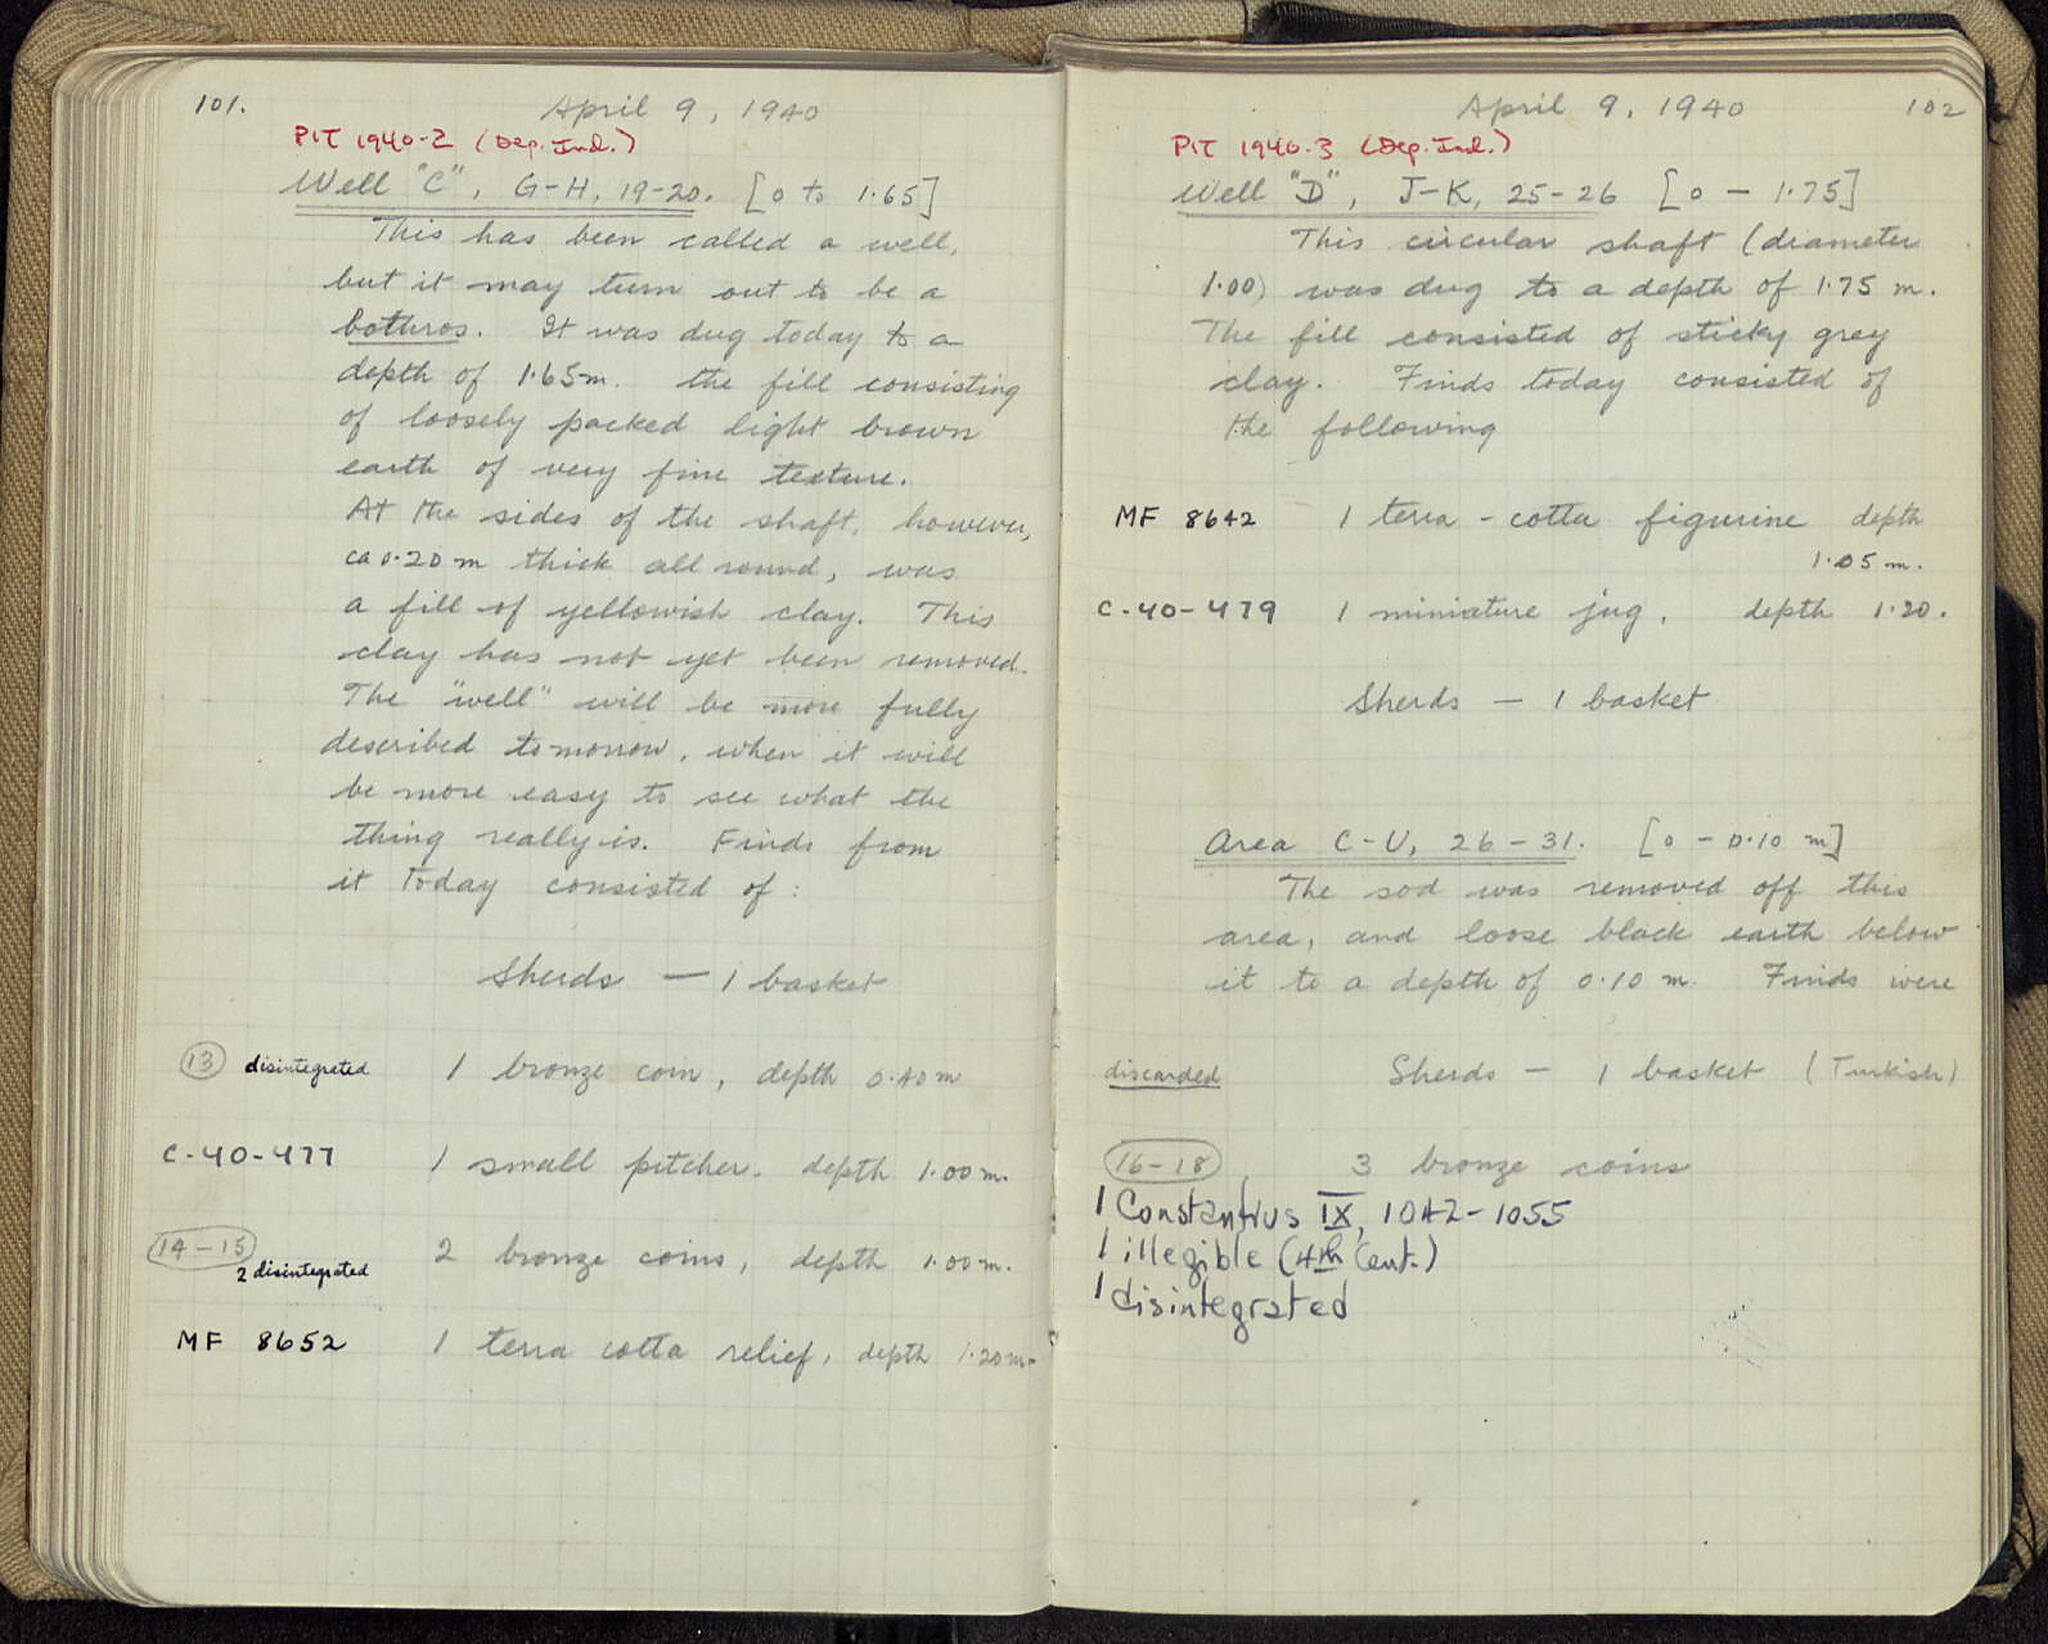 101.
April 9, 1940
PIT 1940-2 (Dep. Ind.)
Well "C", G-H, 19-20. [0 to 1.65]
This has been called a well,
but it may turn out to be a
bothros. It was dug today to a
depth of 1.65m. the fill consisting
of loosely packed light brown
earth of very fine texture.
At the sides of the shaft, however,
ca 0.20 m thick all round, was
a fill of yellowish clay. This
clay has not yet been removed.
The "well" will be more fully
described tomorrow, when it will
be more easy to see what the
thing really is. Finds from
it today consisted of:
Sherds — 1 basket
13 disintegrated 1 bronze coin, depth 0.40 m
C-40-477 1 small pitcher. depth 1.00 m.
14-15 2 bronze coins, depth 1.00 m.
2 disintegrated
MF 8652 1 terra cotta relief, depth 1.20 m.
April 9, 1940 102
PIT 1940-3 (Dep. Ind.)
Well "D", J-K, 25-26 [0 — 1.75]
This circular shaft (diameter
1.00) was dug to a depth of 1.75 m.
The fill consisted of sticky grey
clay. Finds today consisted of
the following
MF 8642 1 terra-cotta figurine depth
1.05 m.
C-40-479 1 miniature jug, depth 1.20.
Sherds — 1 basket
Area C-U, 26-31. [0 - 0.10 m]
The sod was removed off this
area, and loose black earth below
it to a depth of 0.10 m. Finds were
discarded Sherds — 1 basket (Turkish)
16-18 3 bronze coins
1 Constantius IX, 1042-1055
1 illegible (4th Cent.)
1 disintegrated